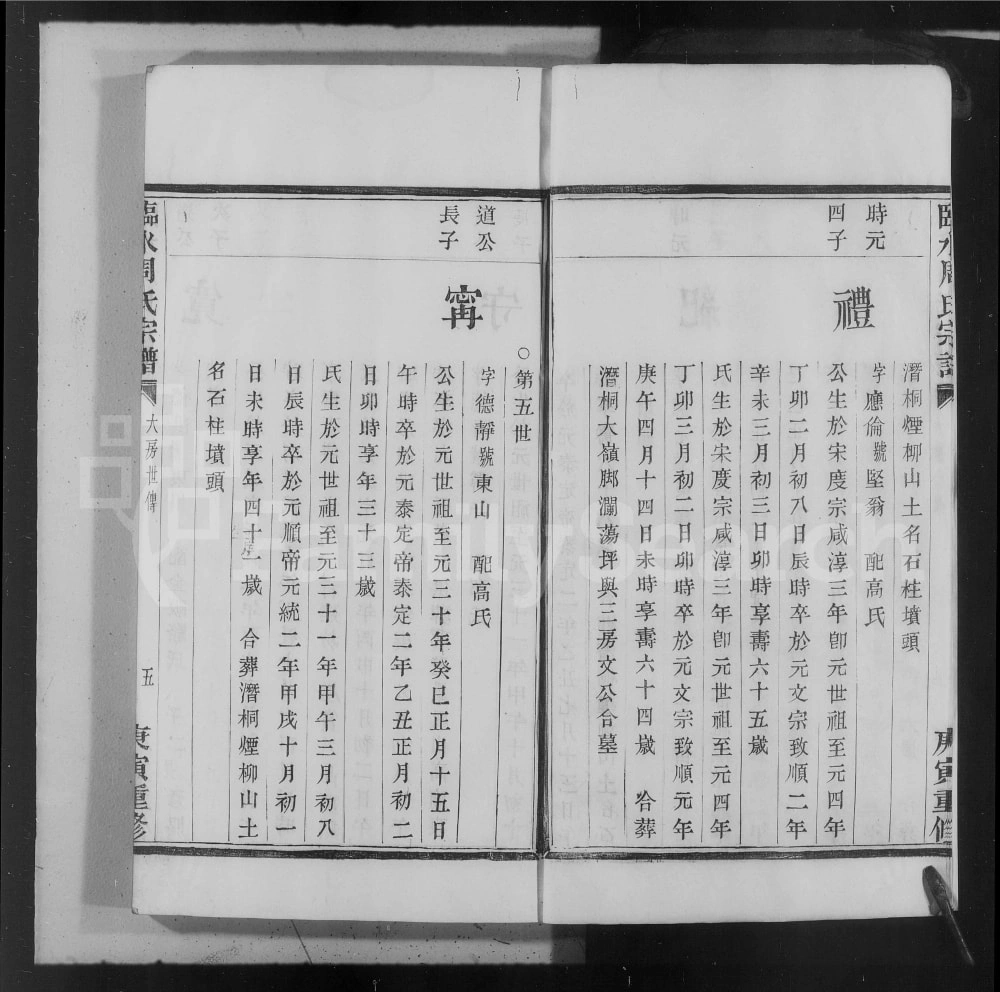 臨水周氏宗譜
庚寅重修
潛桐煙柳山土名石柱墳頭
時元
四子
禮
字應倫號堅翁 配高氏
公生於宋度宗咸淳三年卽元世祖至元四年
丁卯二月初八日辰時卒於元文宗致順二年
辛未三月初三日卯時享壽六十五歲
氏生於宋度宗咸淳三年卽元世祖至元四年
丁卯三月初二日卯時卒於元文宗致順元年
庚午四月十四日未時享壽六十四歲 合葬
潛桐大嶺脚瀾蕩坪與三房文公合墓
○第五世
道公
長子
甯
字德靜號東山 配高氏
公生於元世祖至元三十年癸巳正月十五日
午時卒於元泰定帝泰定二年乙丑正月初二
日卯時享年三十三歲
氏生於元世祖至元三十一年甲午三月初八
日辰時卒於元順帝元統二年甲戌十月初一
日未時享年四十一歲 合葬潛桐煙柳山土
名石柱墳頭
臨水周氏宗譜
大房世傳
五
庚寅重修
FamilySearch